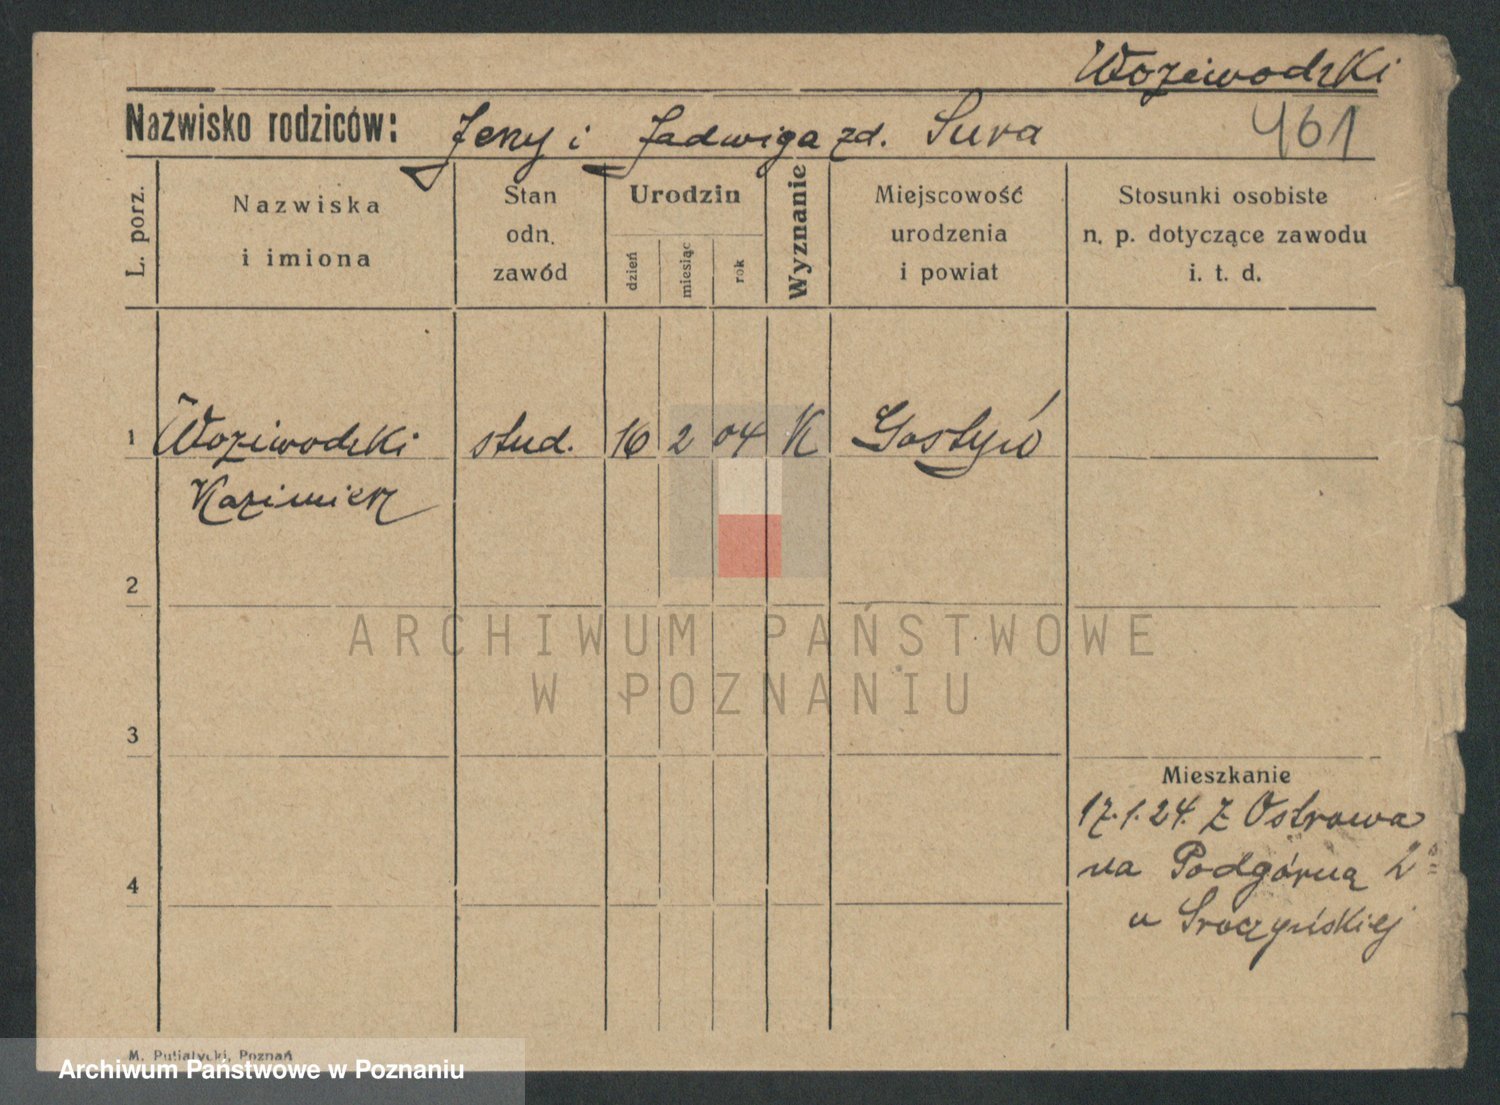 Woziwodzki
Nazwisko rodziców: Jerzy i Jadwiga zd. Sura
461
L. porz.
Nazwiska
i imiona
Stan
odn.
zawód
Urodzin
dzień
miesiąc
rok
Wyznanie
Miejscowość
urodzenia
i powiat
Stosunki osobiste
n. p. dotyczące zawodu
i. t. d.
1 Woziwodzki stud. 16 2 04 K Gostyń
Kazimierz
2
ARCHIWUM PAŃSTWOWE
W POZNANIU
3
Mieszkanie
17.1.24. z Ostrowa
na Podgórną
4
u Sroczyńskiej
M. Putiatycki, Poznań
Archiwum Państwowe w Poznaniu